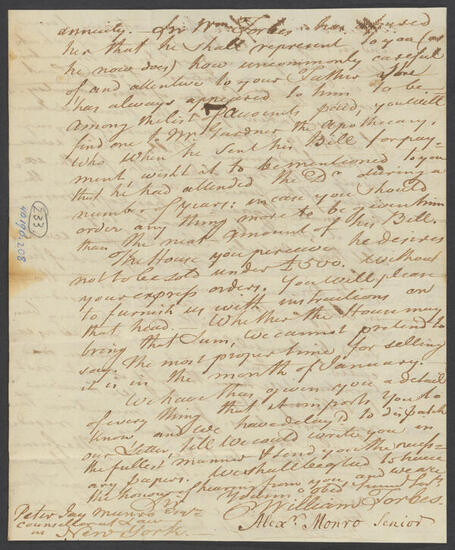 annuity. Sir Wm. Forbes has advised
her that he shall represent to you (as
he now does) how uncommonly careful
of and attentive to your Father she
has always appeared to him to be.
Among the list of Accounts paid, you will
find one of Mr. Gardner the Apothecary,
who when he sent his Bill for pay-
ment wish'd it to be mentioned to you
that he had attended the Dr. during a
number of years; in case you should
order any thing more to be given him
than the neat amount of his Bill.
The House you perceive he desires
not to be sold under £500. without
your express orders. You will please
to furnish us with instructions on
that head. Whether the House may
bring that Sum, we cannot pretend to
say. The most proper time for selling
it is in the month of January.
We have thus given you a detail
of every thing that it imports you to
know and we have delay'd to dispatch
our Letter, till we could write you in
the fullest manner & send you the necess-
ary papers. We shall be glad to have
the honour of hearing from you and we are
Your obed humb Servts.
William Forbes.
Alexr. Monro Senior
Peter Jay Munro Esqr.
Counsellor at Law
in New York.
233
40.190.208